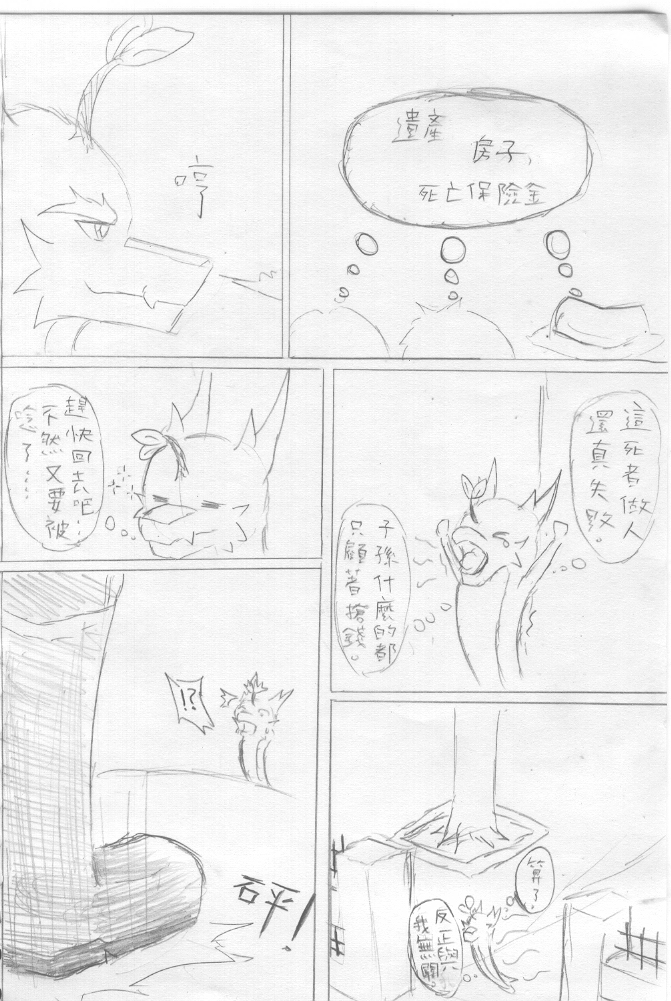 遺產
房子、
死亡保險金
哼
這死者做人
還真失敗。
子孫什麼的都
只顧著搶錢。
趕快回去吧…
不然又要被
唸了……
!?
砰!
算了。
反正與
我無關。